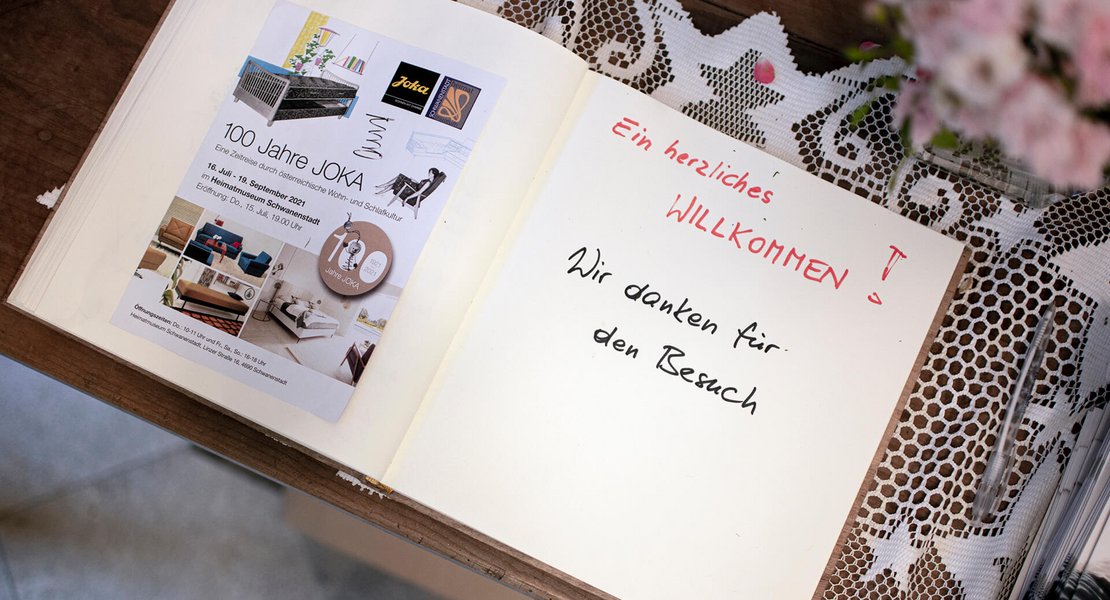 Joka
SCHWANENSTADT
100 Jahre JOKA
Eine Zeitreise durch österreichische Wohn- und Schlafkultur
16. Juli - 19. September 2021
im Heimatmuseum Schwanenstadt
Eröffnung: Do., 15. Juli, 19.00 Uhr
100
1921
2021
Jahre JOKA
Öffnungszeiten: Do., 10-11 Uhr und Fr., Sa., So.: 16-18 Uhr
Heimatmuseum Schwanenstadt, Linzer Straße 16, 4690 Schwanenstadt
Ein herzliches
WILLKOMMEN !
Wir danken für
den Besuch